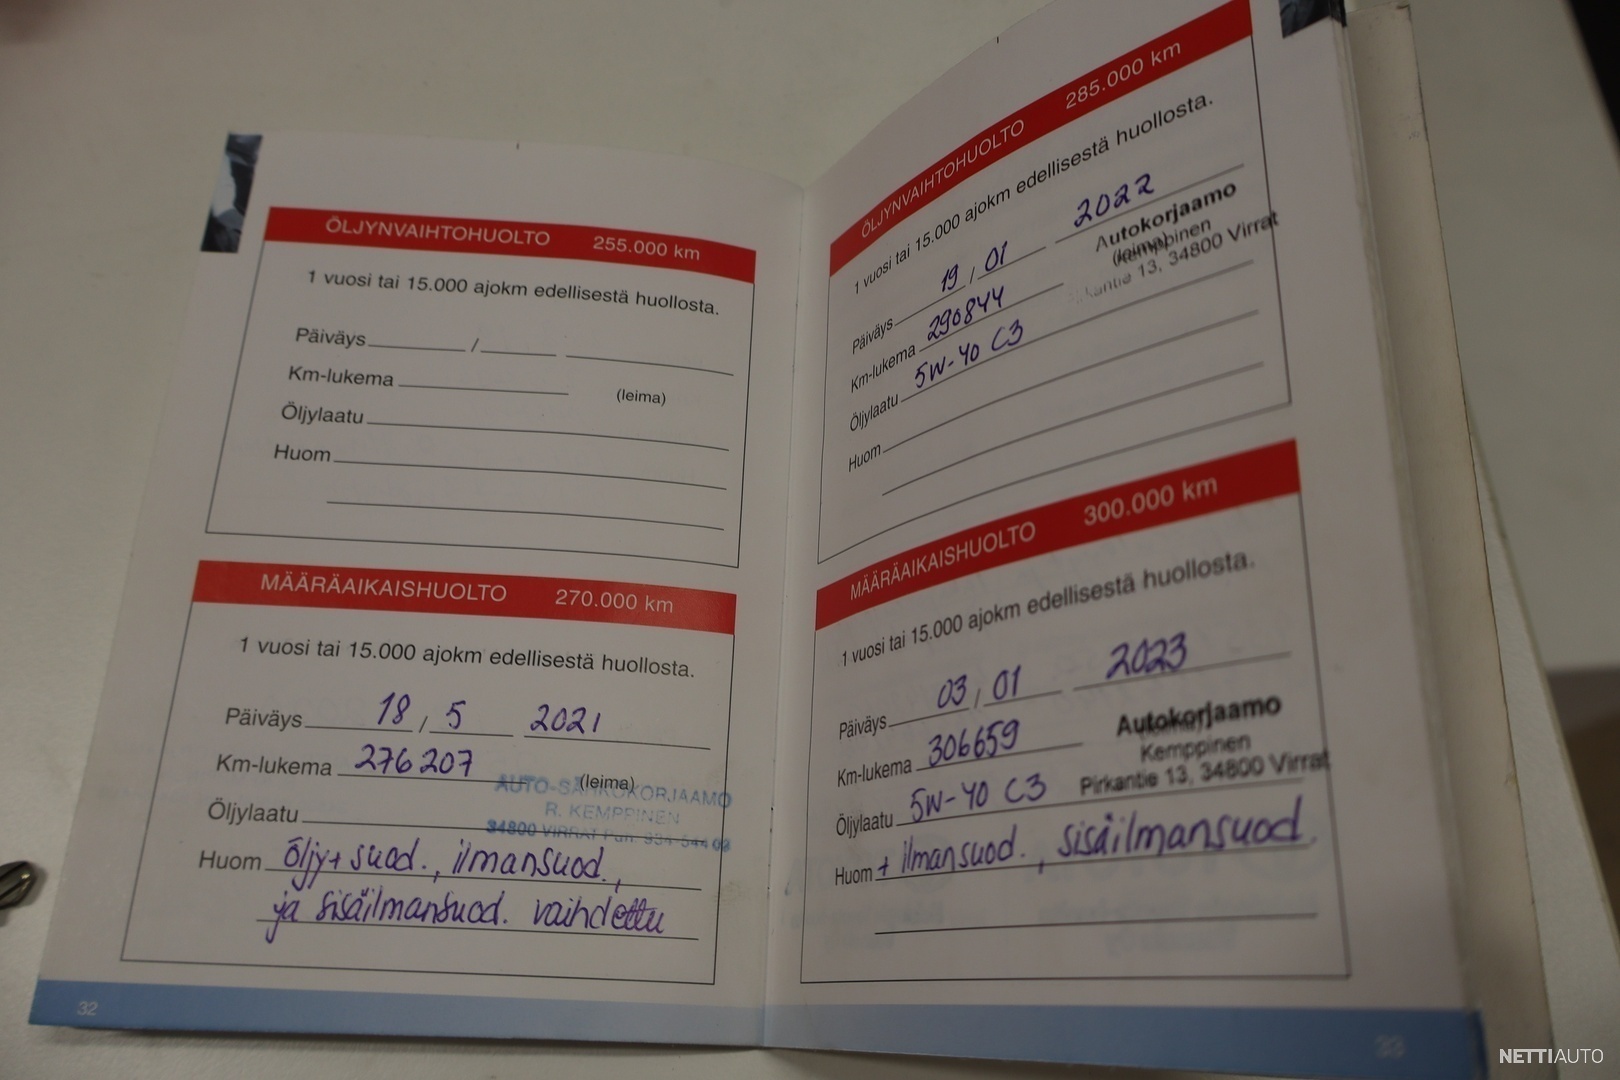 ÖLJYNVAIHTOHUOLTO 255.000 km
1 vuosi tai 15.000 ajokm edellisestä huollosta.
Päiväys / 
Km-lukema (leima)
Öljylaatu
Huom
MÄÄRÄAIKAISHUOLTO 270.000 km
1 vuosi tai 15.000 ajokm edellisestä huollosta.
Päiväys 18 / 5 2021
Km-lukema 276207 (leima)
AUTO-SÄHKÖKORJAAMO
Öljylaatu R. KEMPPINEN
34800 VIRRAT Puh.
Huom öljy+suod., ilmansuod.,
ja sisäilmansuod. vaihdettu
32
ÖLJYNVAIHTOHUOLTO 285.000 km
1 vuosi tai 15.000 ajokm edellisestä huollosta.
Päiväys 19 / 01 2022
Autokorjaamo
Km-lukema 290844 (leima)
Kemppinen
13, 34800 Virrat
Öljylaatu 5W-40 C3
Huom
MÄÄRÄAIKAISHUOLTO 300.000 km
1 vuosi tai 15.000 ajokm edellisestä huollosta.
Päiväys 03 / 01 2023
Autokorjaamo
Km-lukema 306659
Kemppinen
Pirkantie 13, 34800 Virrat
Öljylaatu 5W-40 C3
Huom + ilmansuod., sisäilmansuod.
33
NETTIAUTO